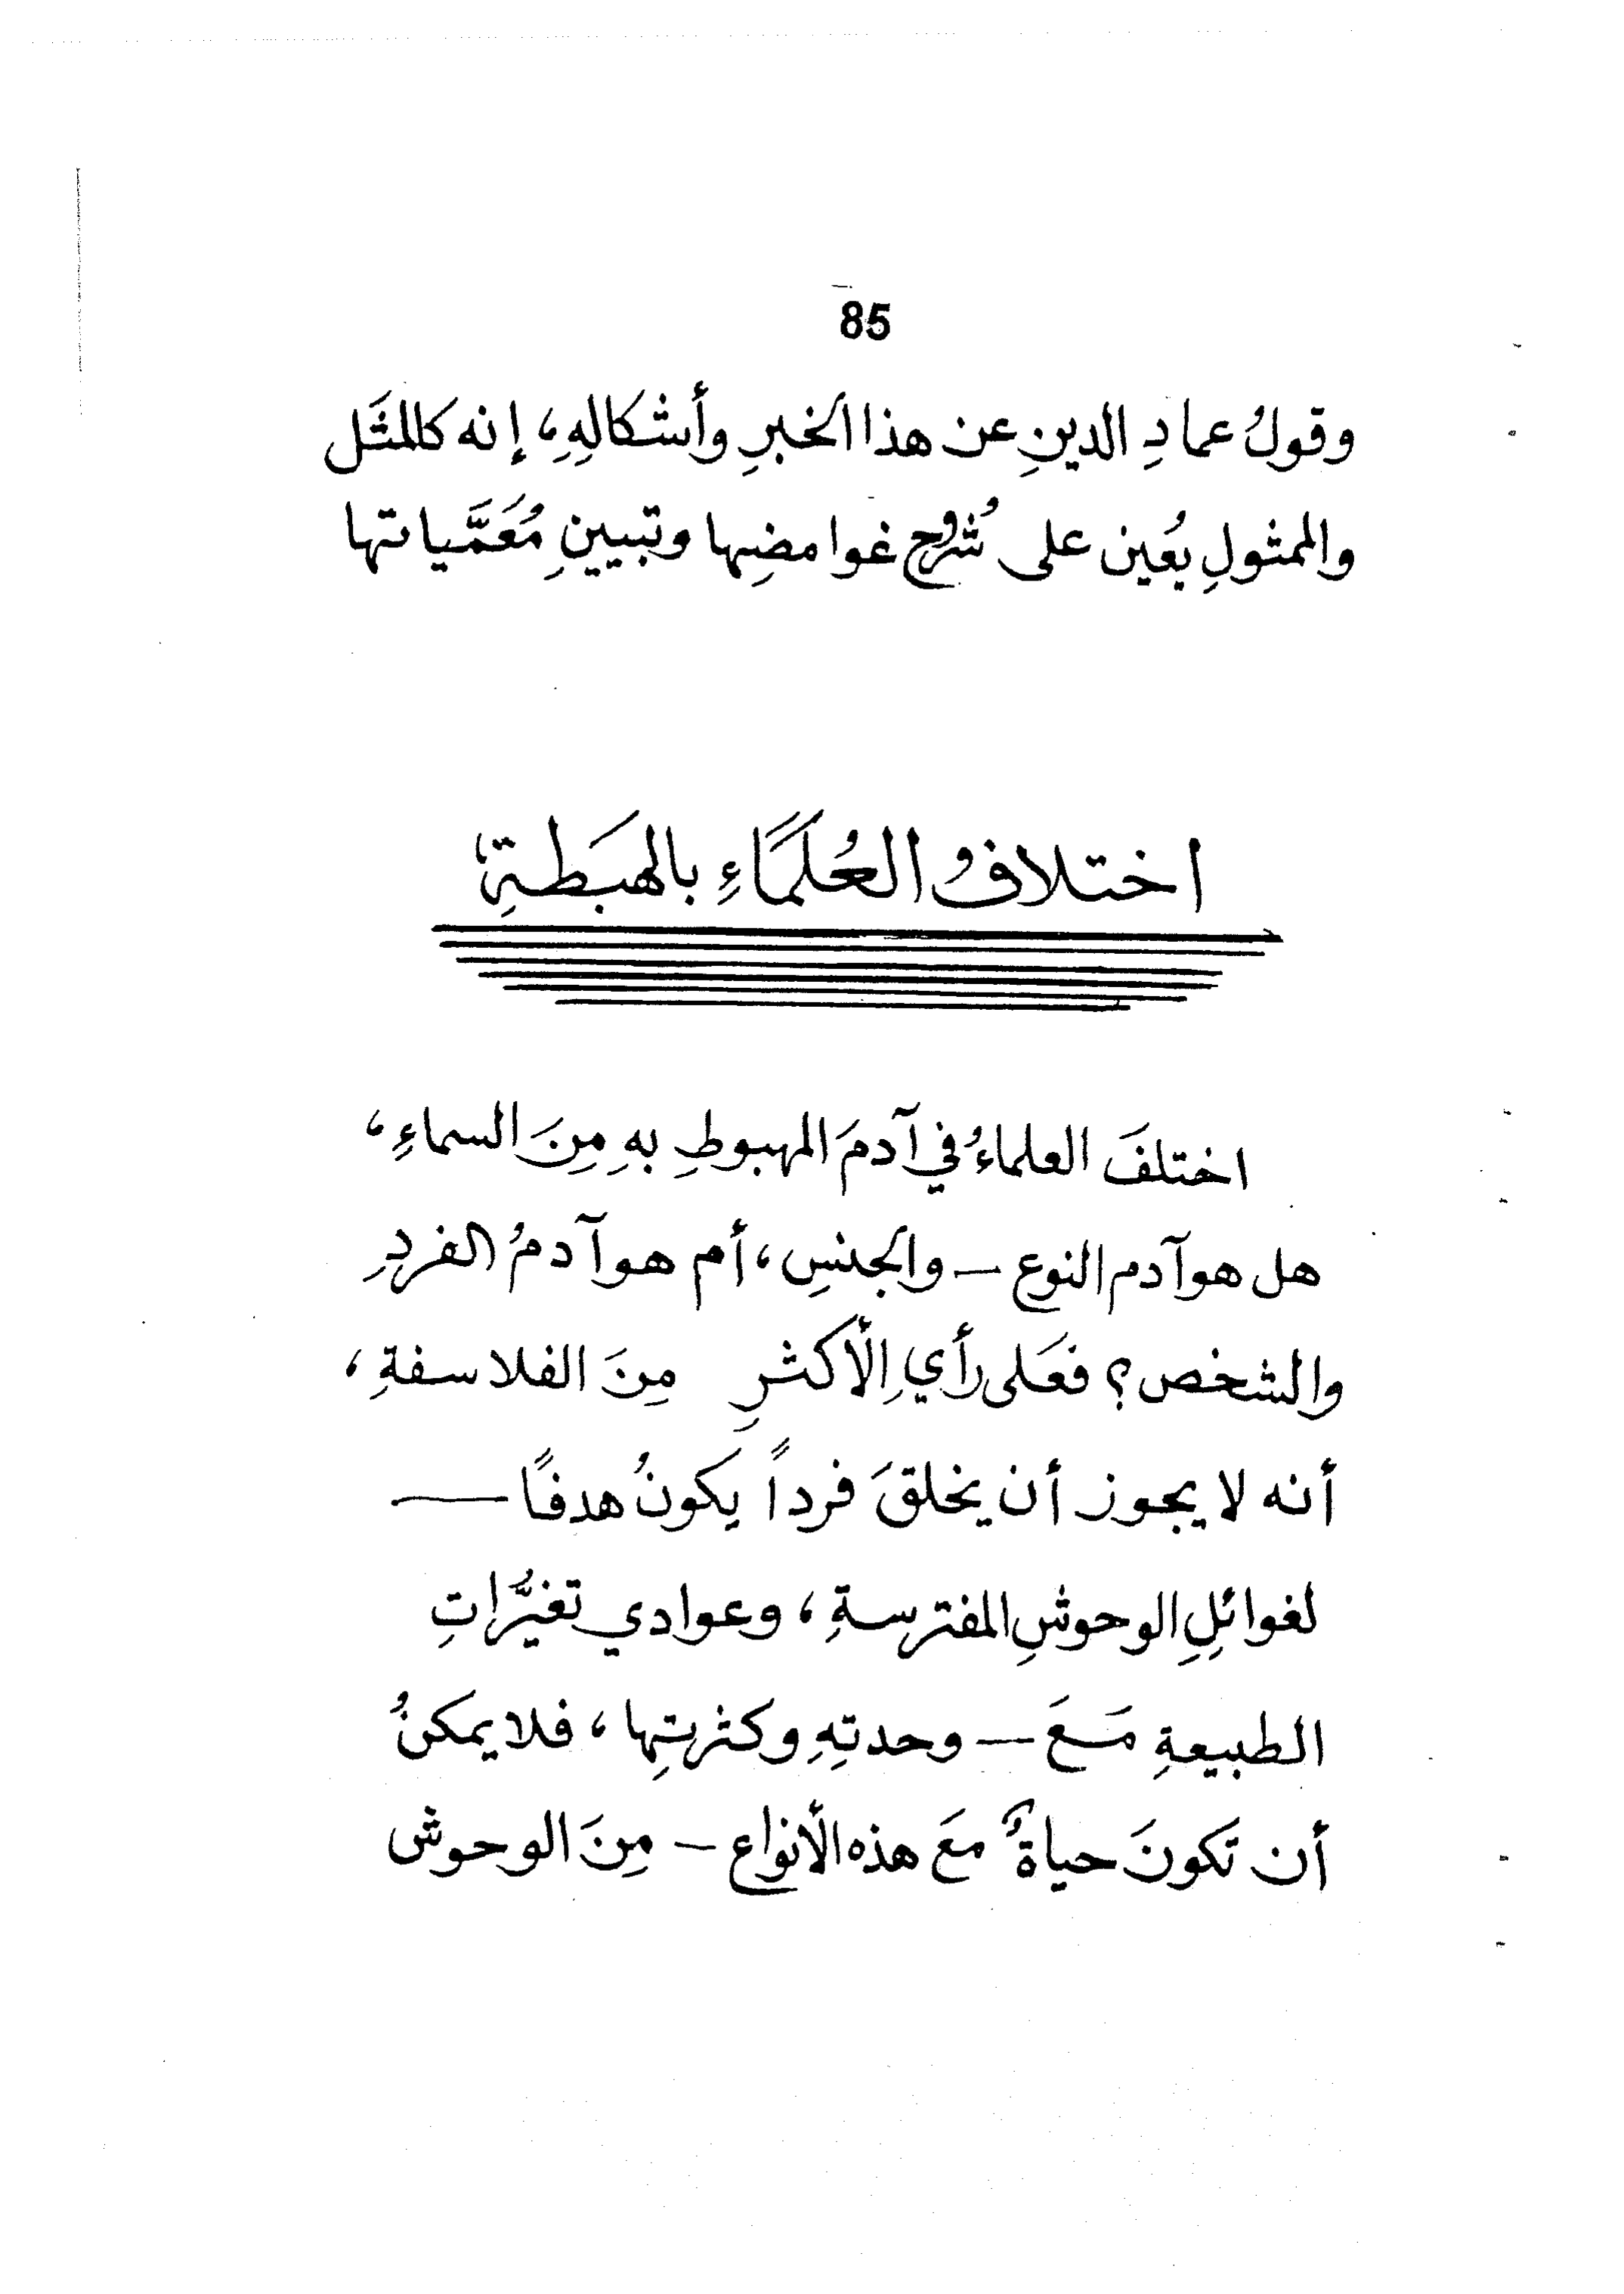 85
وقولُ عمادِ الدينِ عن هذا الخبرِ وأشكالِهِ، إنه كالمثَل
والممثولِ يُعين على شُروح غوامضِها وتبيينِ مُعَمَّياتها
اختلافُ العُلَمَاءِ بالهبَطةِ،
اختلفَ العلماءُ في آدمَ المهبوطِ بهِ مِنَ السماءِ،
هل هو آدم النوع — والجنسِ، أم هو آدمُ الفردِ
والشخص؟ فعَلى رأيِ الأكثرِ مِنَ الفلاسفةِ،
أنه لا يجوز أن يخلقَ فرداً يكونُ هدفًا —
لغوائلِ الوحوشِ المفترسةِ، وعوادي تغيُّراتِ
الطبيعةِ مَعَ — وحدتهِ وكثرتِها، فلا يمكنُ
أن تَكونَ حياةٌ معَ هذه الأنواع — مِنَ الوحوش